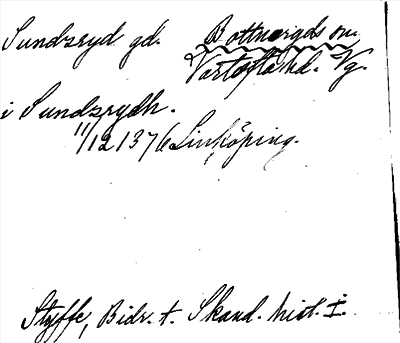 Sundsryd gd. Bottnaryds sn.
Vartofta hd. Vg.
i Sundzrydh.
11/12 1376 Linköping.
Styffe, Bidr. t. Skand. hist. I.